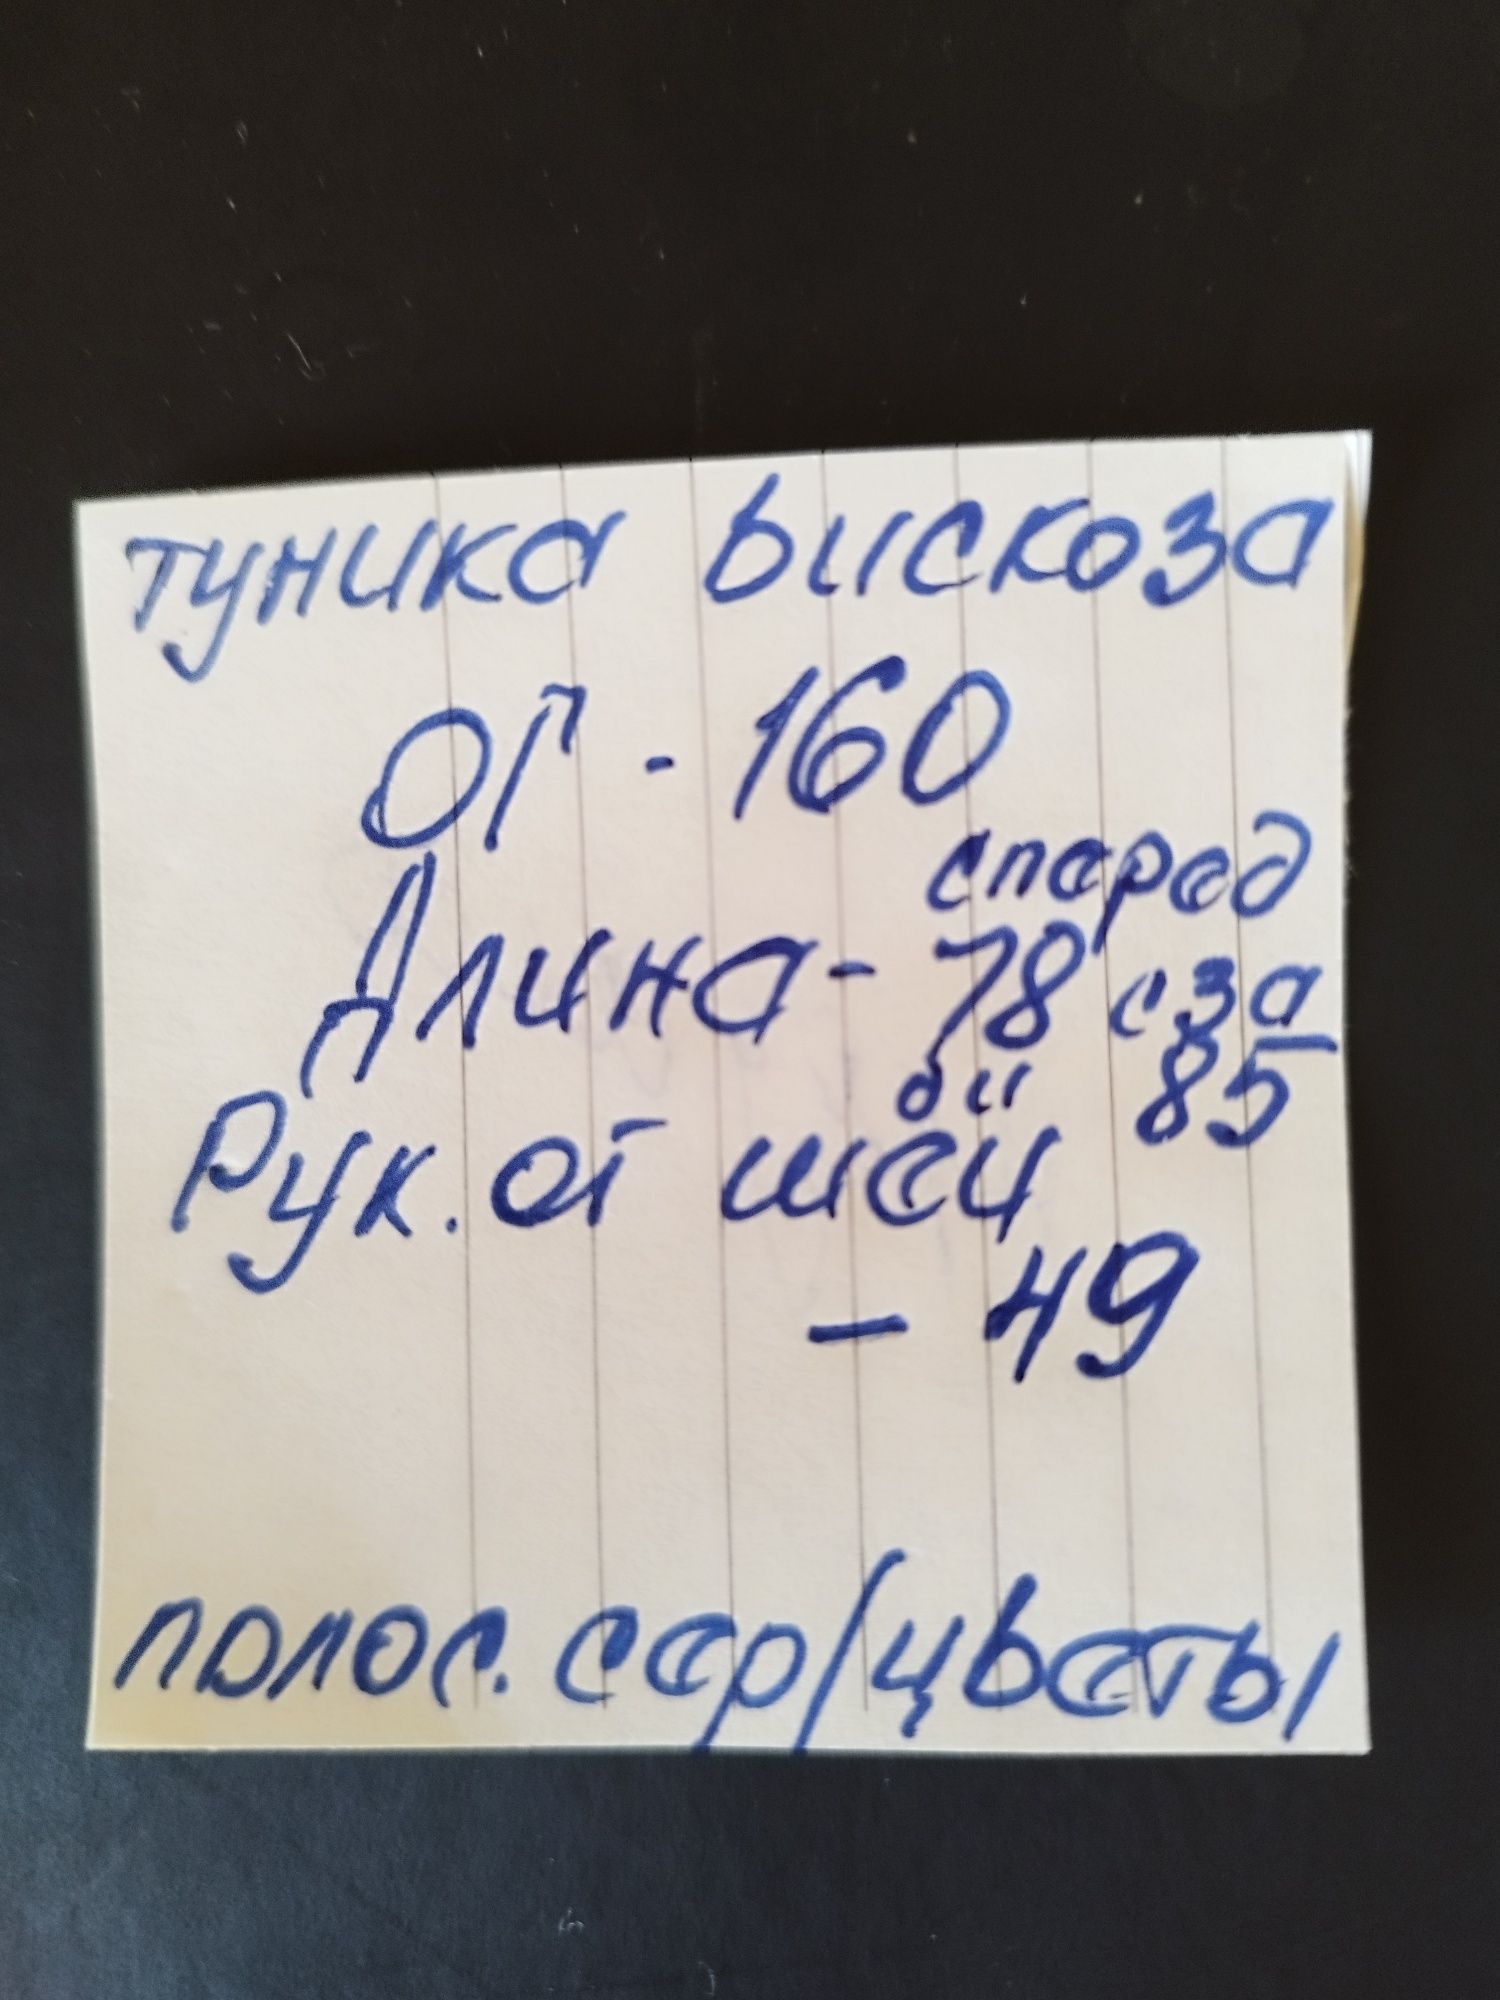 туника вискоза
ОГ - 160
сперед
Длина - 78 сза
ди 85
Рук. от шеи
- 49
полос. сер/цветы